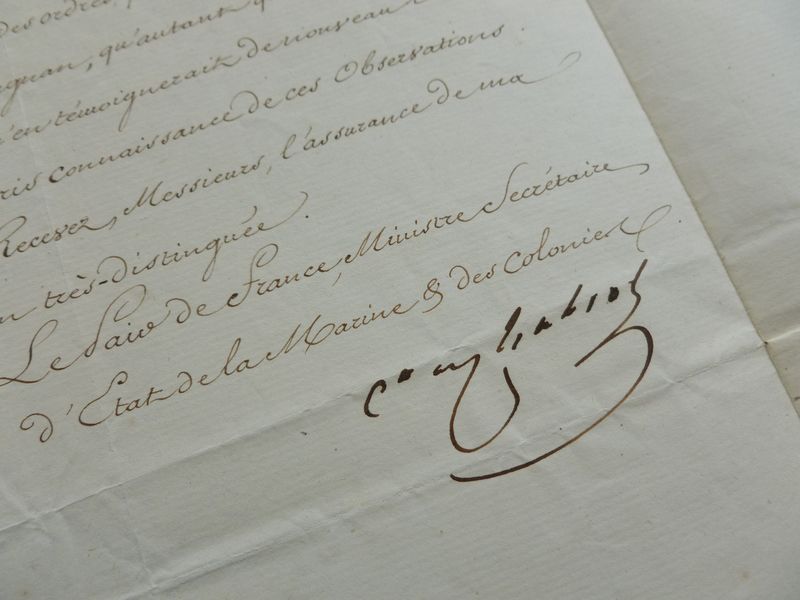 des ordres,
qu'autant
témoignerait de nouveau
connaissance de ces Observations.
Recevez, Messieurs, l'assurance de ma
très-distinguée.
Le Pair de France, Ministre Secrétaire
d'Etat de la Marine & des Colonies.